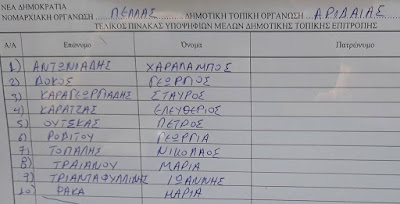 ΝΕΑ ΔΗΜΟΚΡΑΤΙΑ
ΝΟΜΑΡΧΙΑΚΗ ΟΡΓΑΝΩΣΗ ΠΕΛΛΑΣ ΔΗΜΟΤΙΚΗ ΤΟΠΙΚΗ ΟΡΓΑΝΩΣΗ ΑΡΙΔΑΙΑΣ
ΤΕΛΙΚΟΣ ΠΙΝΑΚΑΣ ΥΠΟΨΗΦΙΩΝ ΜΕΛΩΝ ΔΗΜΟΤΙΚΗΣ ΤΟΠΙΚΗΣ ΕΠΙΤΡΟΠΗΣ
Α/Α Επώνυμο Όνομα Πατρώνυμο
1) ΑΝΤΩΝΙΑΔΗΣ ΧΑΡΑΛΑΜΠΟΣ
2) ΔΟΚΟΣ ΓΕΩΡΓΙΟΣ
3) ΚΑΡΑΓΕΩΡΓΙΑΔΗΣ ΣΤΑΥΡΟΣ
4) ΚΑΡΑΤΖΑΣ ΕΛΕΥΘΕΡΙΟΣ
5) ΟΥΤΣΚΑΣ ΠΕΤΡΟΣ
6) ΡΟΔΙΤΟΥ ΓΕΩΡΓΙΑ
7) ΤΟΠΑΛΗΣ ΝΙΚΟΛΑΟΣ
8) ΤΡΑΙΑΝΟΥ ΜΑΡΙΑ
9) ΤΡΙΑΝΤΑΦΥΛΛΙΔΗΣ ΙΩΑΝΝΗΣ
10) ΦΑΚΑ ΜΑΡΙΑ